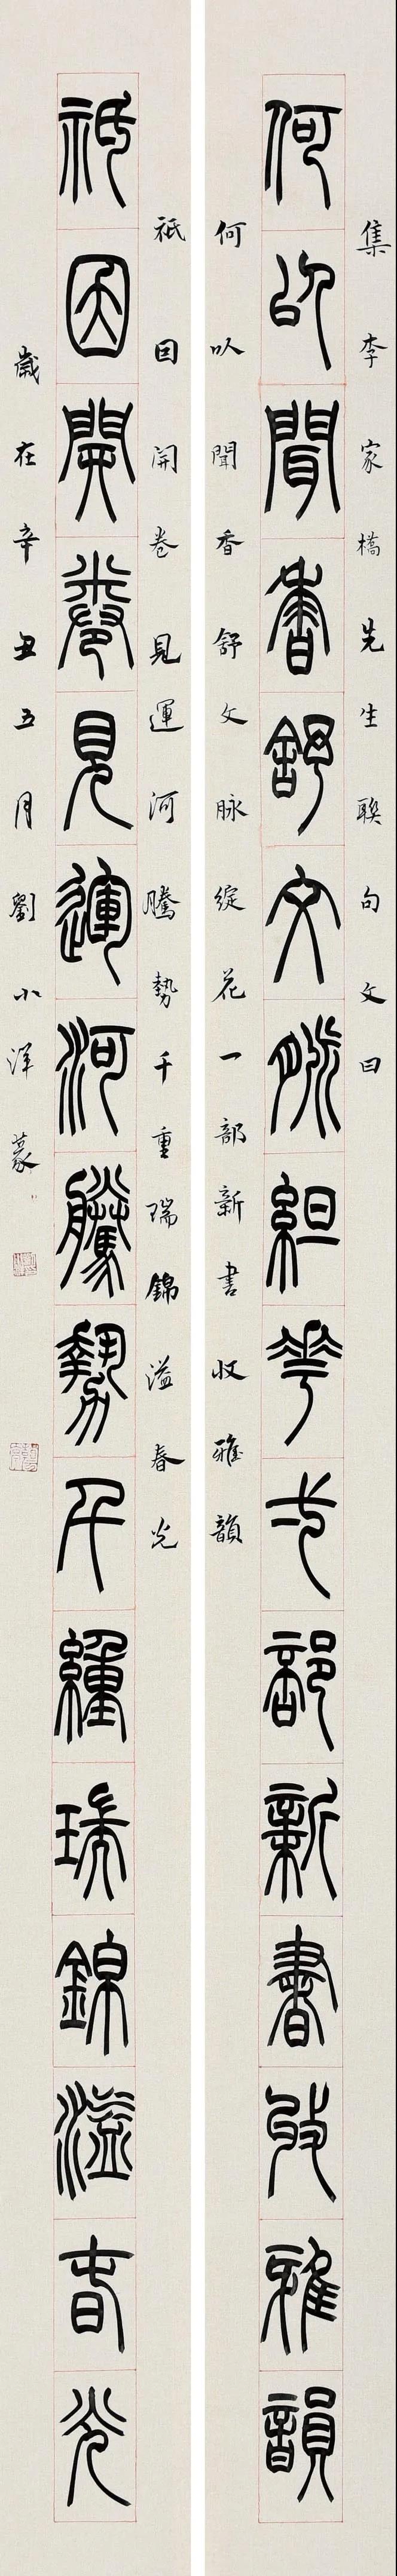 集李家橋先生聯句文曰
何以聞香舒文脉綻花一部新書收雅韻
何以聞香舒文脉綻花一部新書收雅韻
祇因開卷見運河騰勢千重瑞錦溢春光
祇因開卷見運河騰勢千緟瑞錦溢春光
歲在辛丑五月劉小洋篆